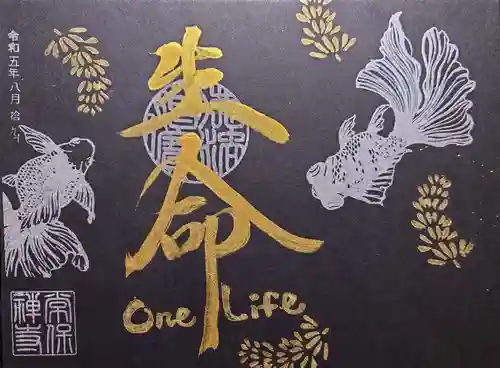 令和五年八月拾九日
生命
One Life
常保
禅寺